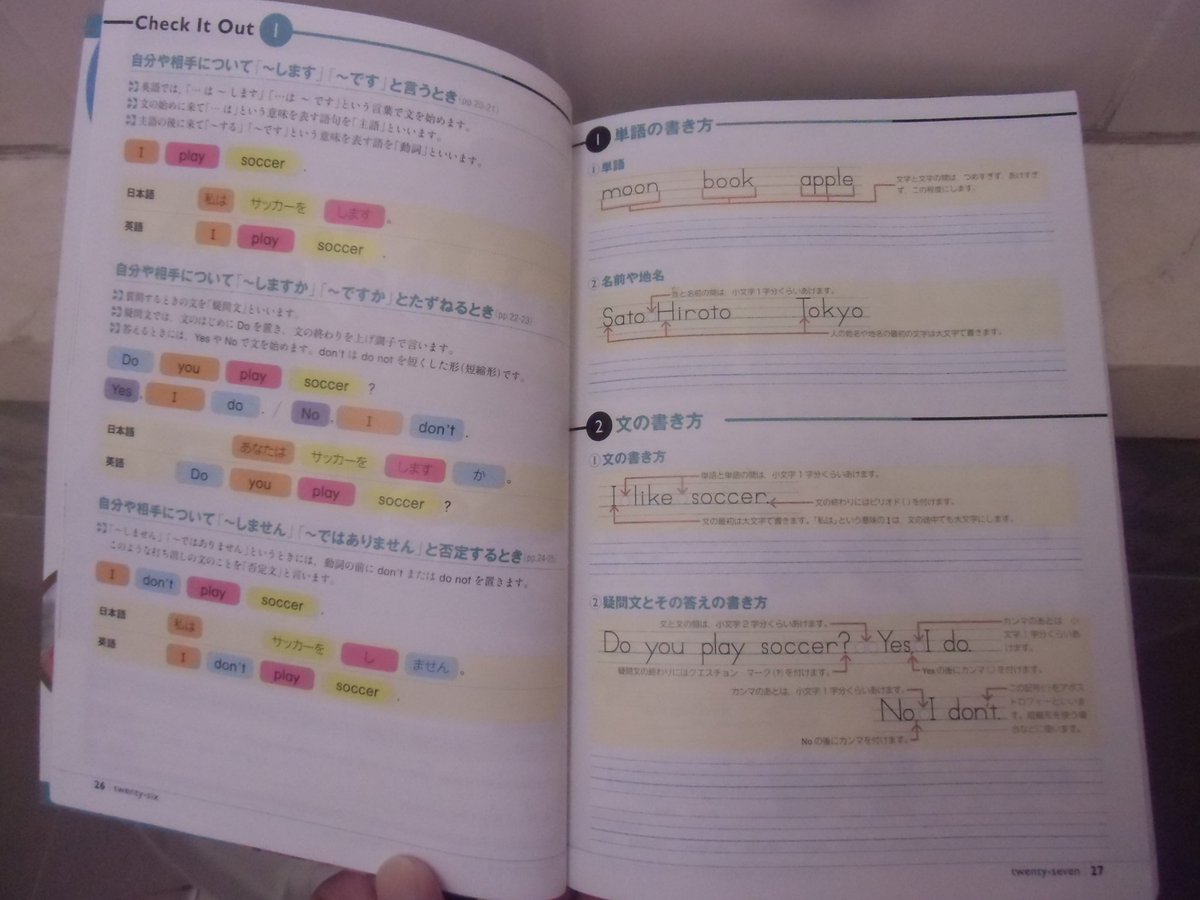 Check It Out 1
自分や相手について「〜します」「〜です」と言うとき(pp.20-21)
英語では,「…は〜します」「…は〜です」という言葉で文を始めます。
文の始めに来て「…は」という意味を表す語句を「主語」といいます。
主語の後に来て「〜する」「〜です」という意味を表す語を「動詞」といいます。
I play soccer .
日本語 私は サッカーを します 。
英語 I play soccer .
自分や相手について「〜しますか」「〜ですか」とたずねるとき(pp.22-23)
質問するときの文を「疑問文」といいます。
疑問文では, 文のはじめに Do を置き, 文の終わりを上げ調子で言います。
答えるときには, Yes や No で文を始めます。don't は do not を短くした形(短縮形)です。
Do you play soccer ?
Yes , I do . / No , I don't .
日本語 あなたは サッカーを します か 。
英語 Do you play soccer ?
自分や相手について「〜しません」「〜ではありません」と否定するとき(pp.24-25)
「〜しません」「〜ではありません」というときには, 動詞の前に don't または do not を置きます。
このような打ち消しの文のことを「否定文」と言います。
I don't play soccer .
日本語 私は サッカーを し ません 。
英語 I don't play soccer .
26 twenty-six
1 単語の書き方
①単語
moon book apple
文字と文字の間は つめすぎず, あけすぎ
ず, この程度にします。
②名前や地名
姓と名前の間は, 小文字1字分くらいあけます。
Sato Hiroto Tokyo
人の姓名や地名の最初の文字は大文字で書きます。
2 文の書き方
①文の書き方
単語と単語の間は 小文字1字分くらいあけます。
I like soccer.
文の終わりにはピリオド(.)を付けます。
文の最初は大文字で書きます。「私は」という意味の I は, 文の途中でも大文字にします。
②疑問文とその答えの書き方
文と文の間は, 小文字2字分くらいあけます。
カンマのあとは 小
文字1字分くらいあ
けます。
Do you play soccer? Yes, I do.
疑問文の終わりにはクエスチョン マーク(?)を付けます。
Yes の後にカンマ(,)を付けます。
カンマのあとは, 小文字1字分くらいあけます。
この記号(')をアポス
トロフィーといいま
す。短縮形を使う場
合などに使います。
No, I don't.
No の後にカンマを付けます。
twenty-seven 27